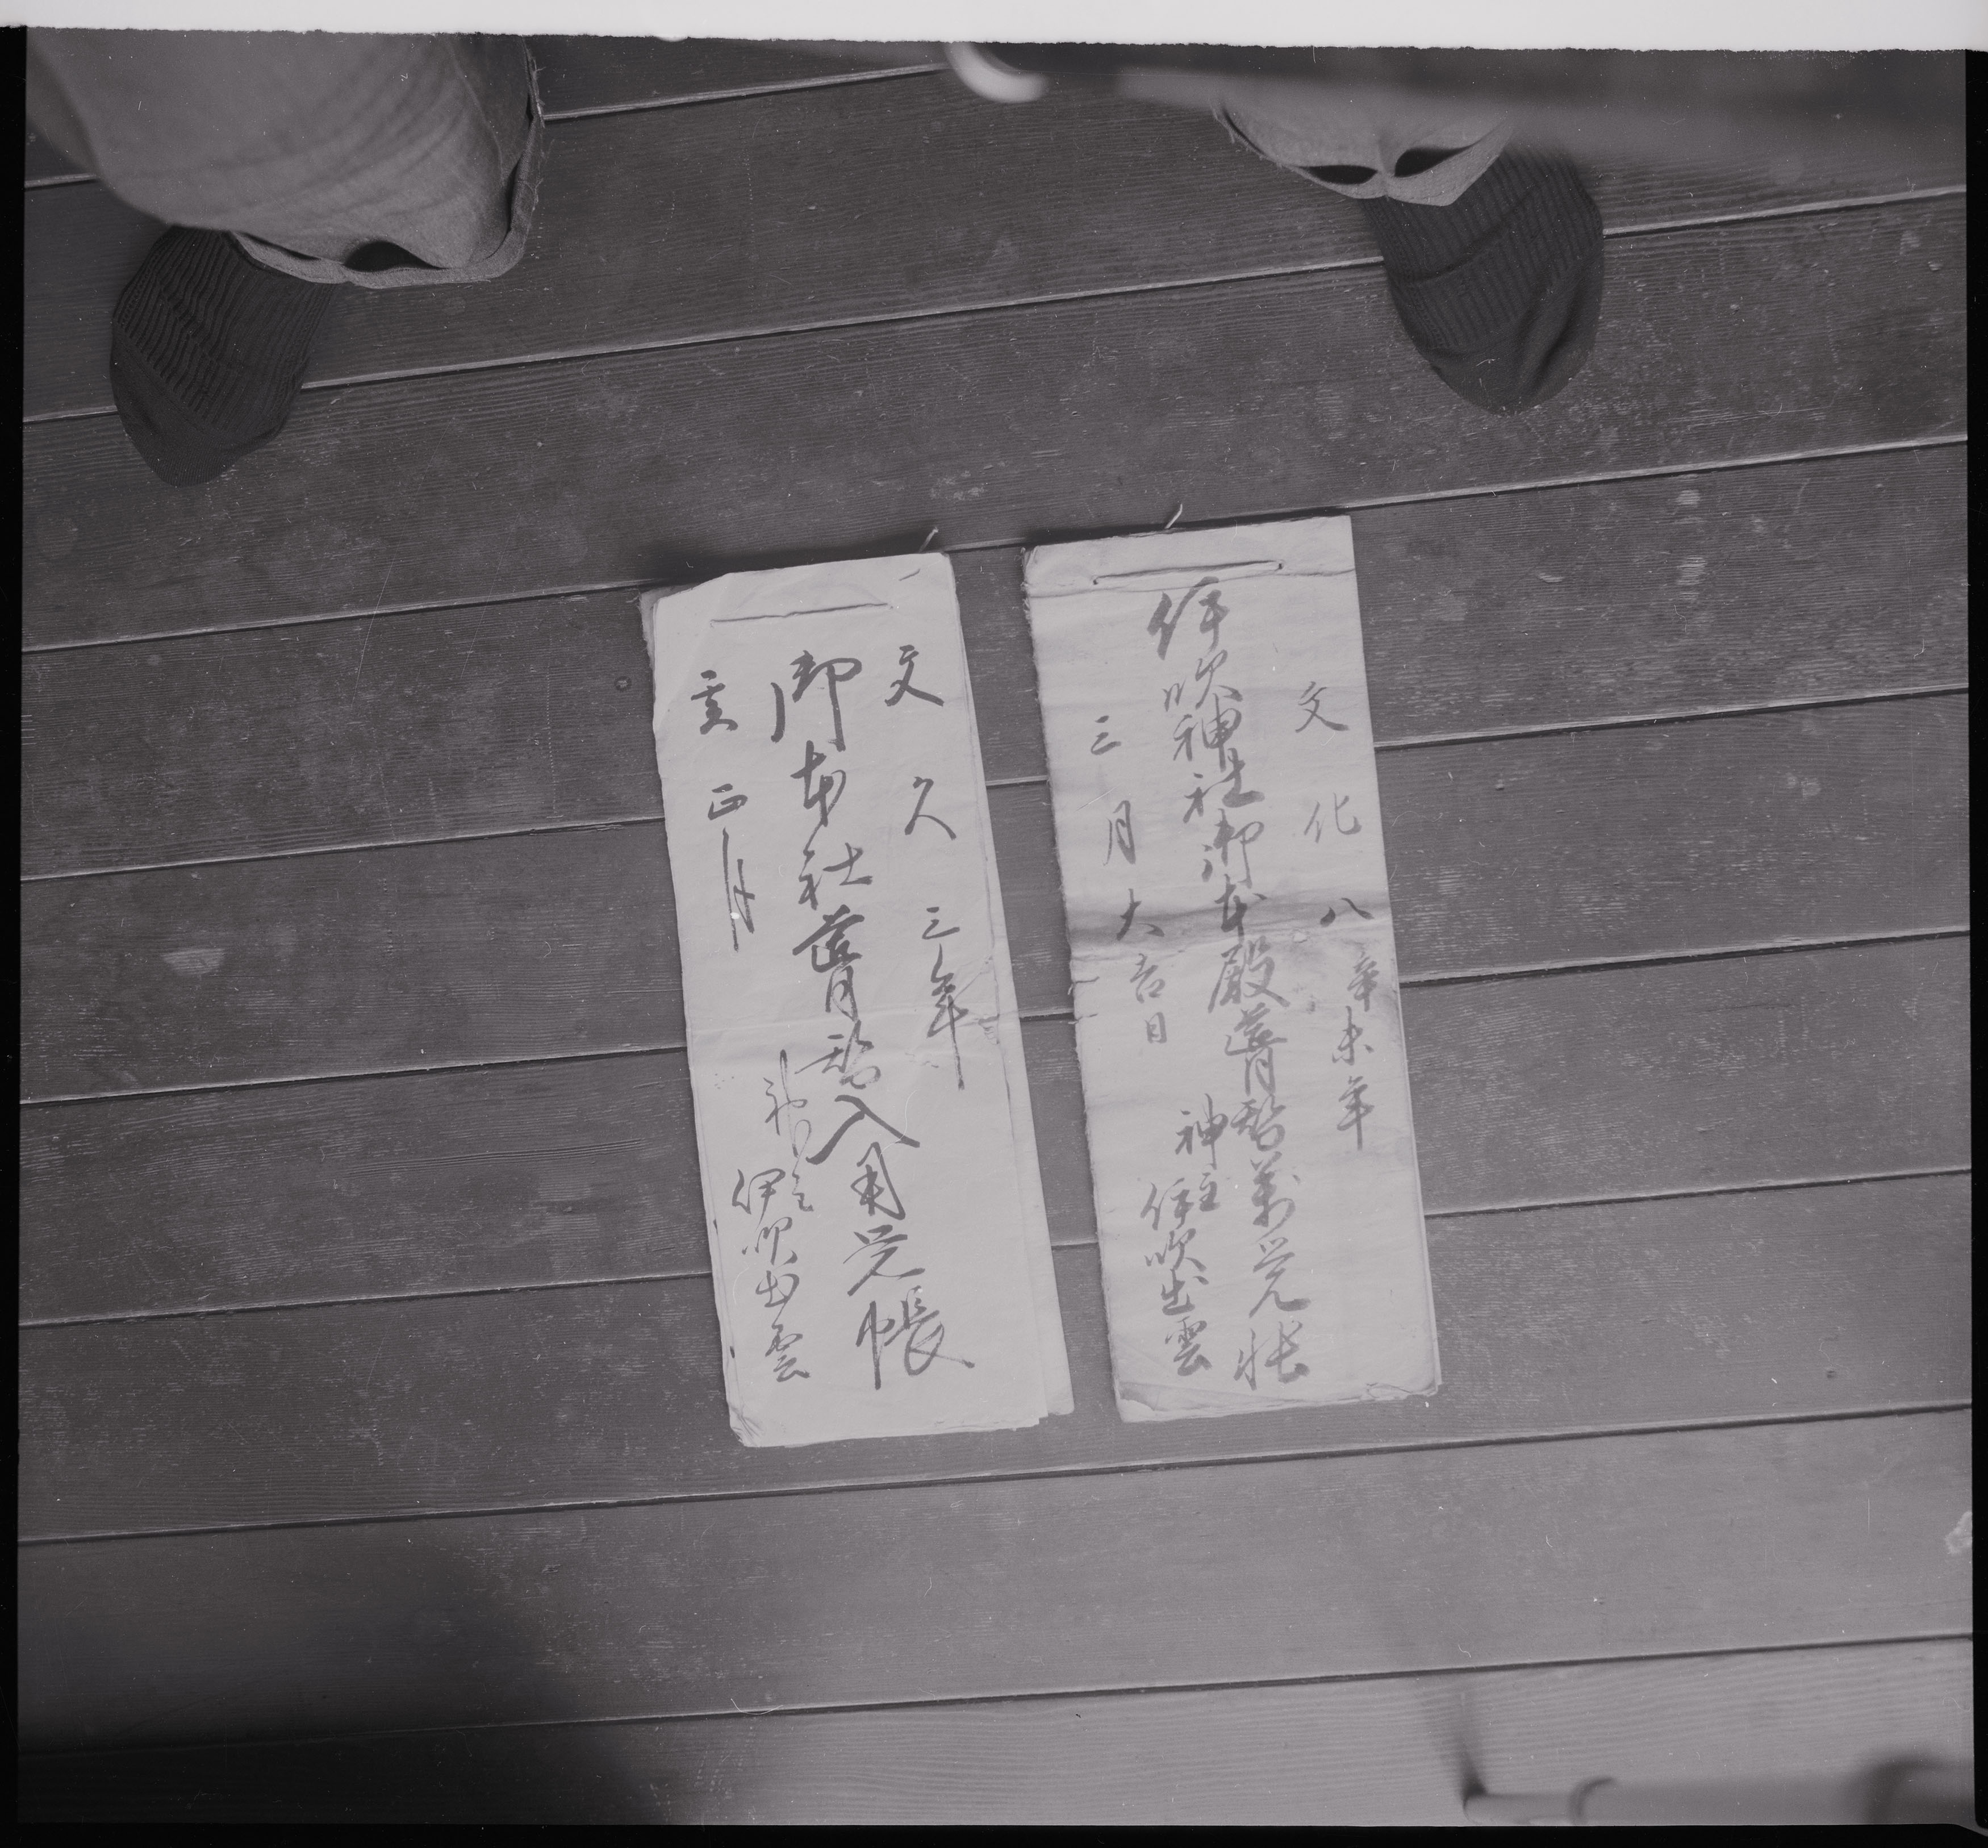 文化八辛未年
伊吹神社御本殿葺替萬覚帳
三月大吉日
神主
伊吹出雲
文久三年
御本社葺替入用覚帳
亥正月
神主
伊吹出雲